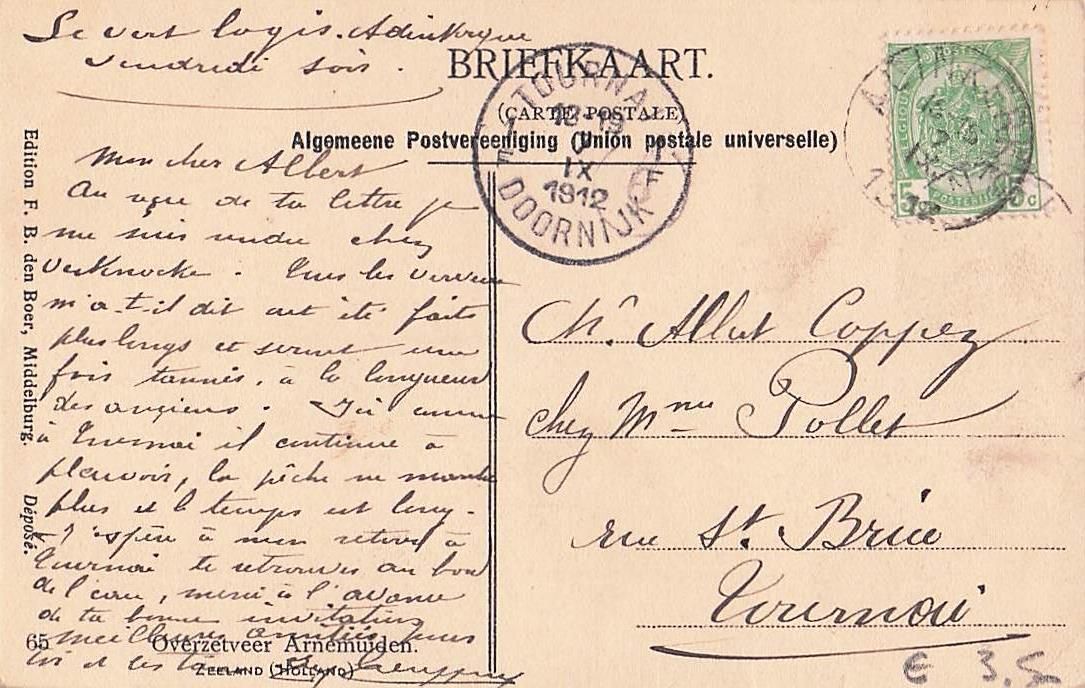 Le vert logis. Adinkerque
Vendredi soir.
BRIEFKAART.
(CARTE POSTALE)
Algemeene Postvereeniging (Union postale universelle)
TOURNAI
18-19
IX
1912
DOORNIJK
F F
5 5c
Edition F. B. den Boer, Middelburg. Déposé.
Mon cher Albert
Au reçu de ta lettre je
me suis rendu chez
Verknocke. Tous les
m'a-t-il dit ont été faits
plus longs et seront une
fois tannés, à la longueur
des anciens. Ici comme
à Tournai il continue à
pleuvoir, la pêche ne marche
plus et le temps est long.
J'espère à mon retour à
Tournai te retrouver au bord
de l'eau, merci à l'avance
de ta bonne invitation
meilleures amitiés pour
toi et les tiens
Mr. Albert Coppez
chez Mme Pollet
rue St. Brice
Tournai
65 Overzetveer Arnemuiden.
ZEELAND (HOLLAND)
€ 3.5